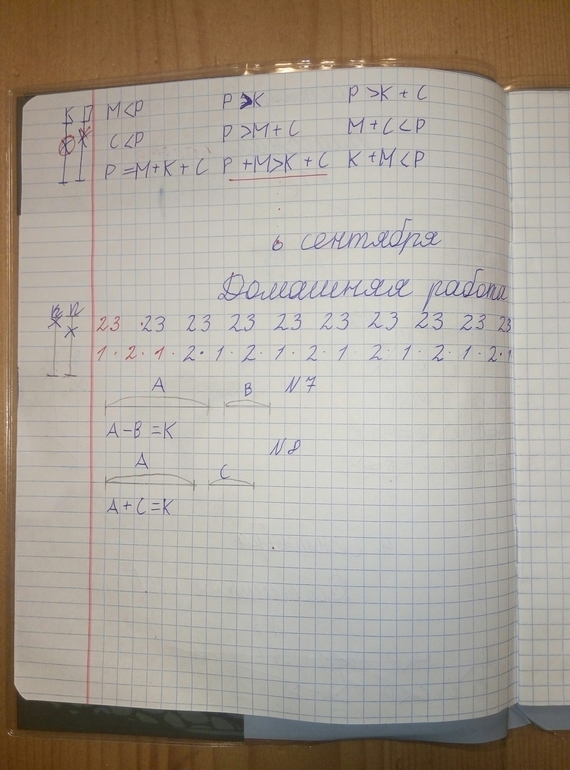 К П M<P P>K P>K+C
C<P P>M+C M+C<P
P=M+K+C P+M>K+C K+M<P
6 сентября
Домашняя работа
23 23 23 23 23 23 23 23 23 23
1·2·1·2·1·2·1·2·1·2·1·2·2·1
A B N7
A-B=K
A C N8
A+C=K